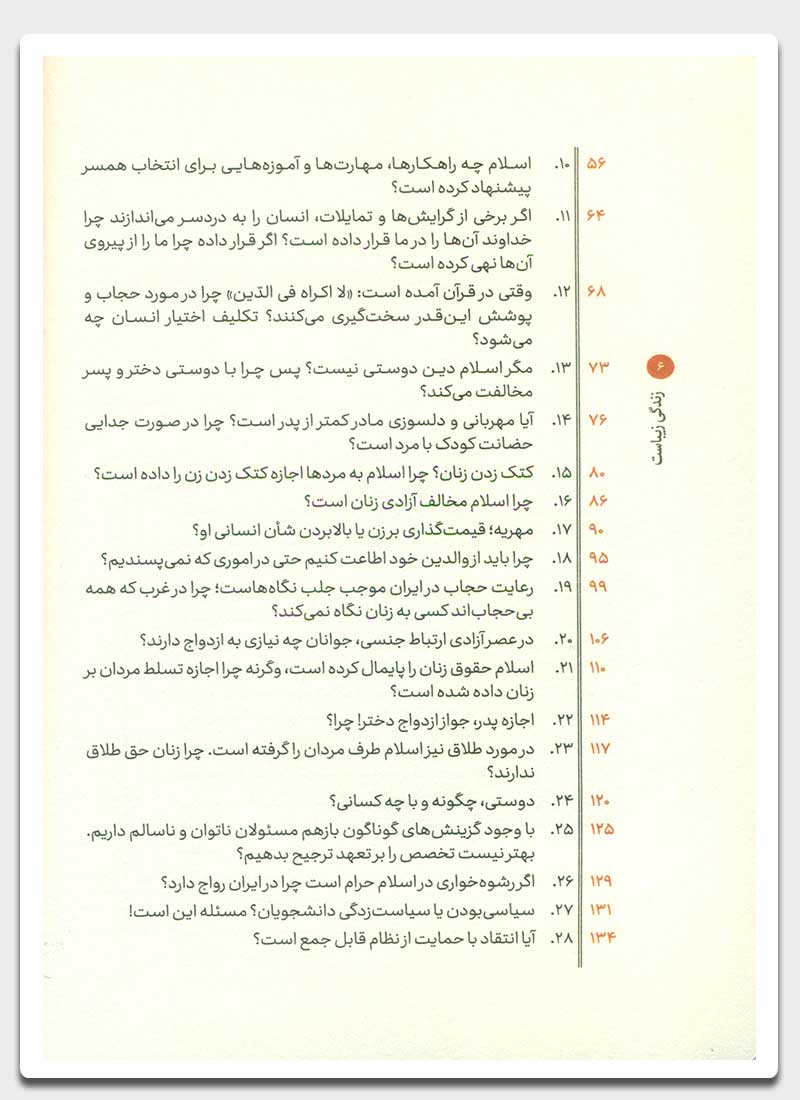 ۵۶ ۱۰. اسلام چه راهکارها، مهارت‌ها و آموزه‌هایی برای انتخاب همسر
پیشنهاد کرده است؟
۶۴ ۱۱. اگر برخی از گرایش‌ها و تمایلات، انسان را به دردسر می‌اندازند چرا
خداوند آن‌ها را در ما قرار داده است؟ اگر قرار داده چرا ما را از پیروی
آن‌ها نهی کرده است؟
۶۸ ۱۲. وقتی در قرآن آمده است: «لا اکراه فی الدّین» چرا در مورد حجاب و
پوشش این‌قدر سخت‌گیری می‌کنند؟ تکلیف اختیار انسان چه
می‌شود؟
۷۳ ۱۳. مگر اسلام دین دوستی نیست؟ پس چرا با دوستی دختر و پسر
مخالفت می‌کند؟
۷۶ ۱۴. آیا مهربانی و دلسوزی مادر کمتر از پدر است؟ چرا در صورت جدایی
حضانت کودک با مرد است؟
۸۰ ۱۵. کتک زدن زنان؟ چرا اسلام به مردها اجازه کتک زدن زن را داده است؟
۸۶ ۱۶. چرا اسلام مخالف آزادی زنان است؟
۹۰ ۱۷. مهریه؛ قیمت‌گذاری بر زن یا بالابردن شأن انسانی او؟
۹۵ ۱۸. چرا باید از والدین خود اطاعت کنیم حتی در اموری که نمی‌پسندیم؟
۹۹ ۱۹. رعایت حجاب در ایران موجب جلب نگاه‌هاست؛ چرا در غرب که همه
بی‌حجاب‌اند کسی به زنان نگاه نمی‌کند؟
۱۰۶ ۲۰. در عصر آزادی ارتباط جنسی، جوانان چه نیازی به ازدواج دارند؟
۱۱۰ ۲۱. اسلام حقوق زنان را پایمال کرده است، وگرنه چرا اجازه تسلط مردان بر
زنان داده شده است؟
۱۱۴ ۲۲. اجازه پدر، جواز ازدواج دختر! چرا؟
۱۱۷ ۲۳. در مورد طلاق نیز اسلام طرف مردان را گرفته است. چرا زنان حق طلاق
ندارند؟
۱۲۰ ۲۴. دوستی، چگونه و با چه کسانی؟
۱۲۵ ۲۵. با وجود گزینش‌های گوناگون بازهم مسئولان ناتوان و ناسالم داریم.
بهتر نیست تخصص را بر تعهد ترجیح بدهیم؟
۱۲۹ ۲۶. اگر رشوه‌خواری در اسلام حرام است چرا در ایران رواج دارد؟
۱۳۱ ۲۷. سیاسی‌بودن یا سیاست‌زدگی دانشجویان؟ مسئله این است!
۱۳۴ ۲۸. آیا انتقاد با حمایت از نظام قابل جمع است؟
۶
زندگی زیباست